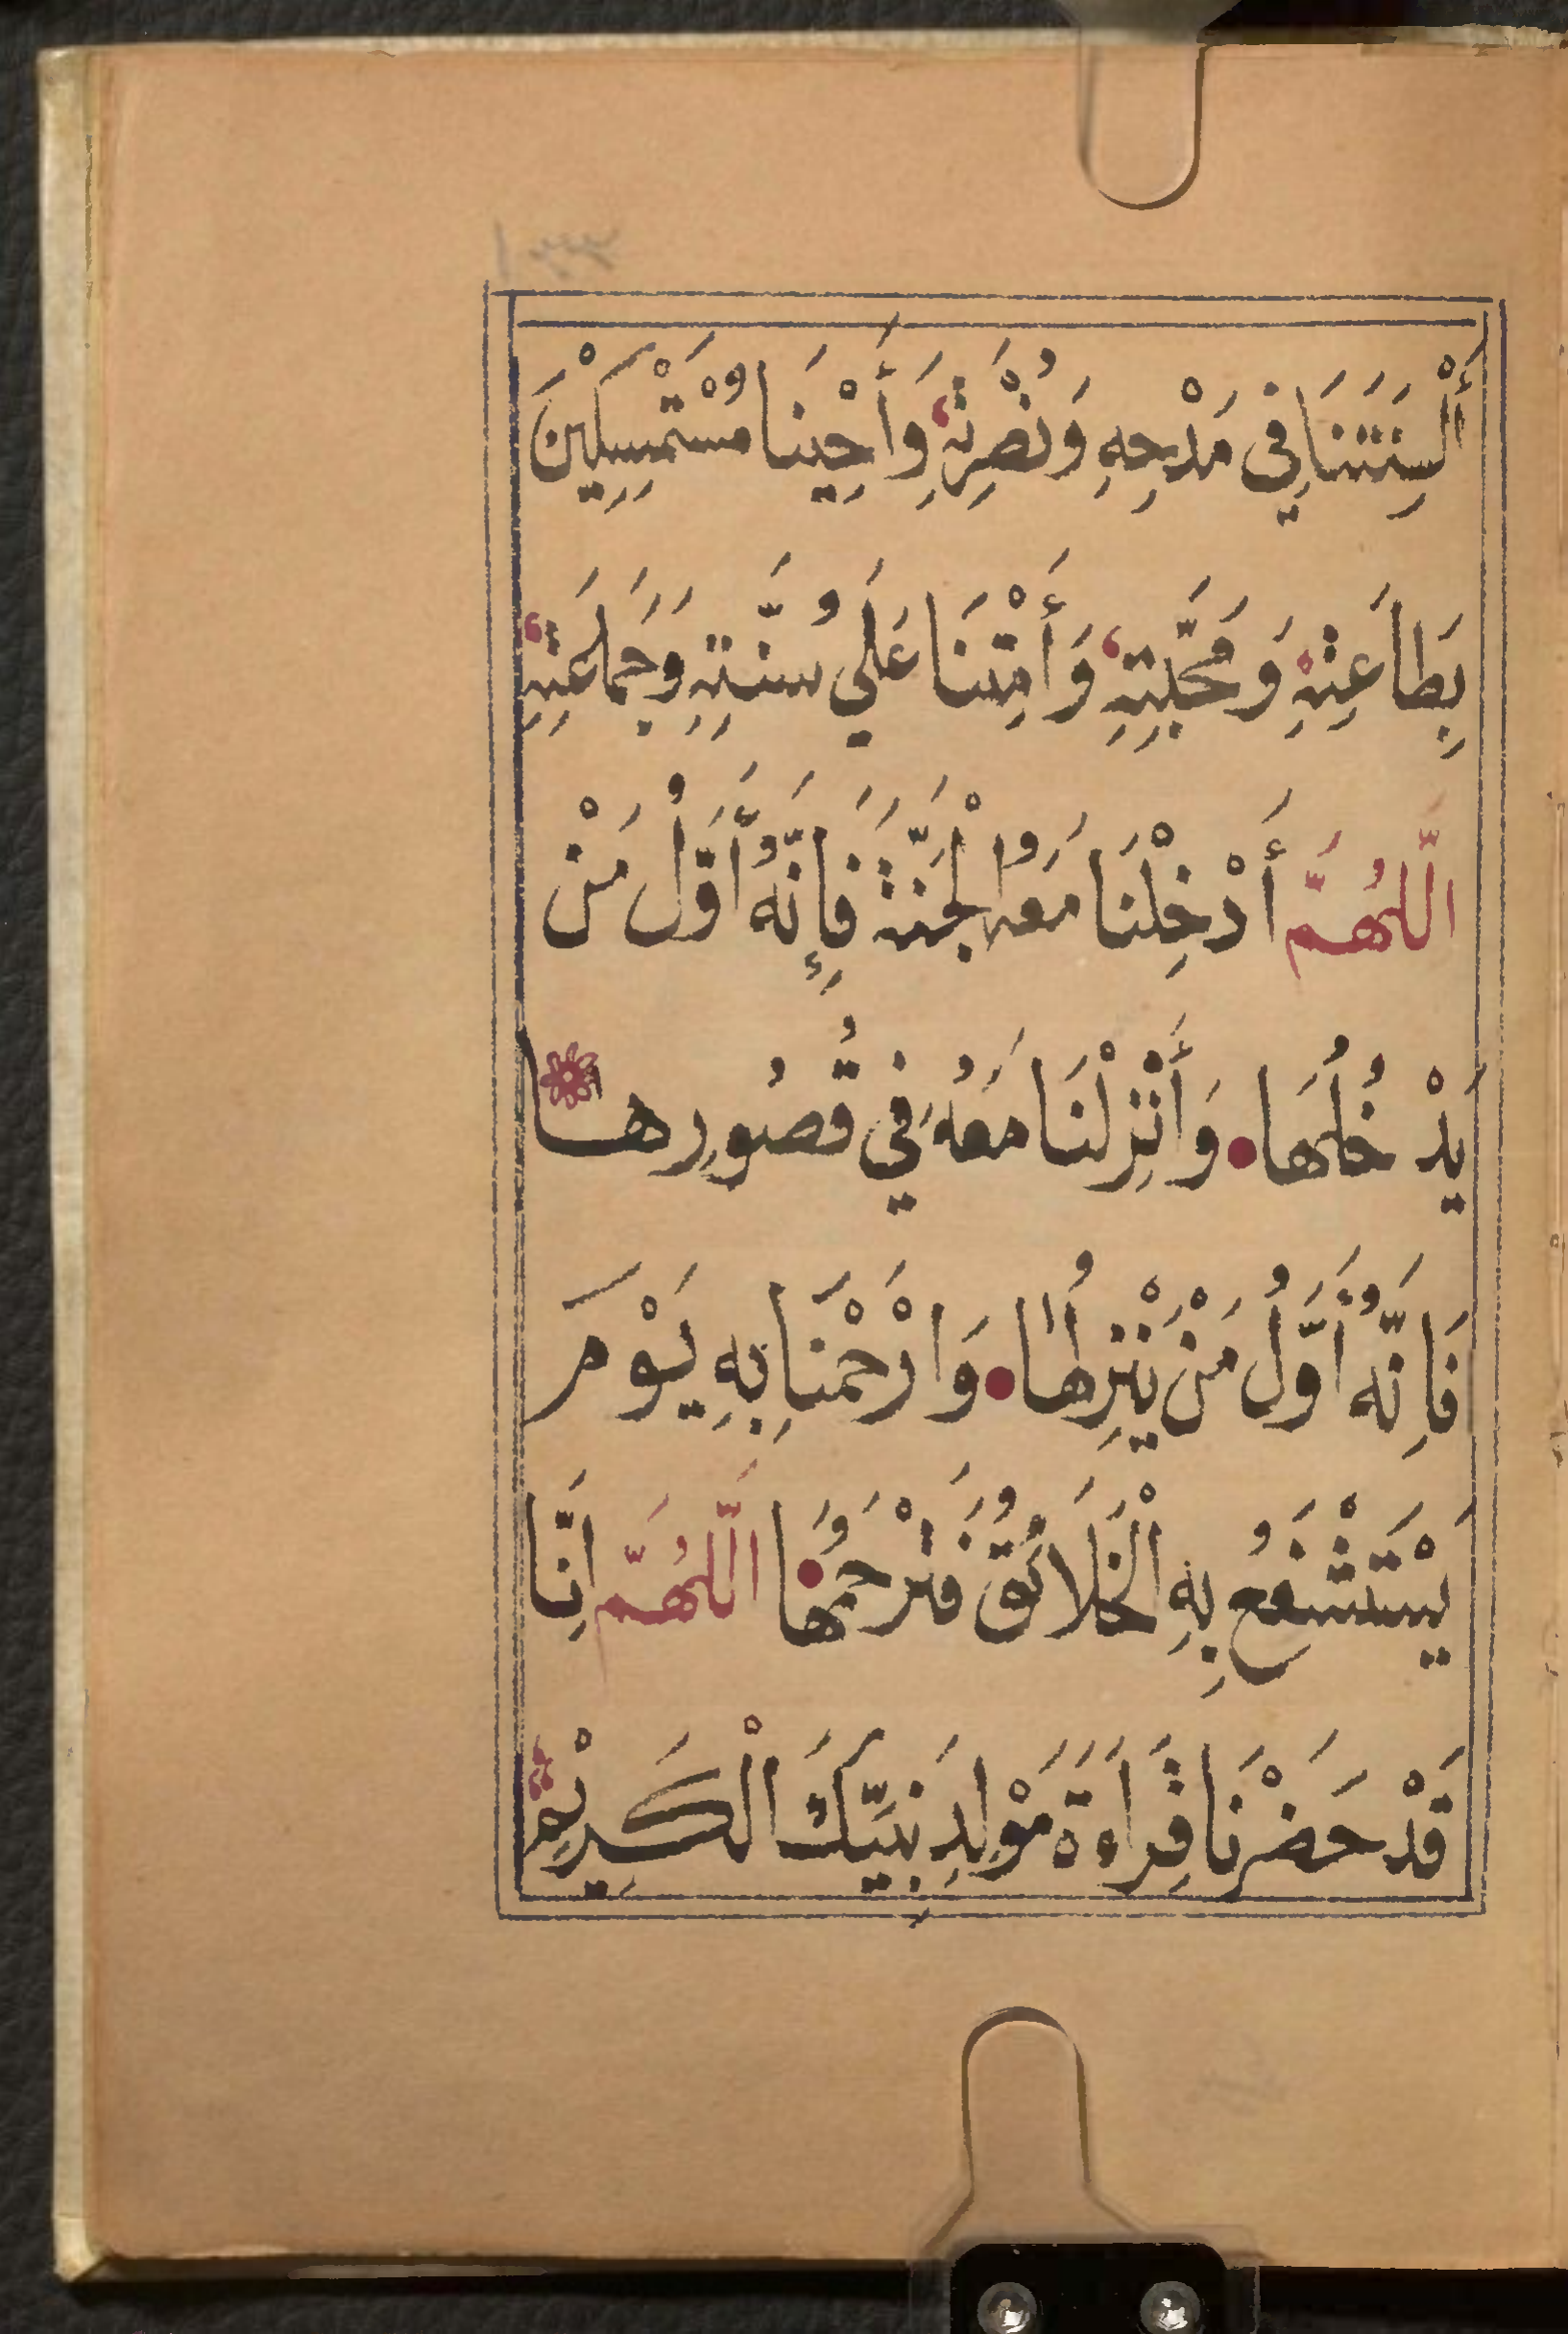 أَلْسِنَتَنَا فِي مَدْحِهِ وَنُصْرَتِهِ وَأَحْيِنَا مُسْتَمْسِكِيْنَ
بِطَاعَتِهِ وَمَحَبَّتِهِ وَأَمِتْنَا عَلَي سُنَّتِهِ وَجَمَاعَتِهِ
اللَّهُمَّ أَدْخِلْنَا مَعَهُ الْجَنَّةَ فَإِنَّهُ أَوَّلُ مَنْ
يَدْخُلُهَا وَأَنْزِلْنَا مَعَهُ فِي قُصُورِهَا
فَاِنَّهُ أَوَّلُ مَنْ يَنْزِلُهَا وَارْحَمْنَا بِهِ يَوْمَ
يَسْتَشْفِعُ بِهِ الْخَلَائِقُ فَتَرْحَمُهَا اللَّهُمَّ اِنَّا
قَدْ حَضَرْنَا قِرَاءَةَ مَوْلِدِ نَبِيِّكَ الْكَرِيْمِ